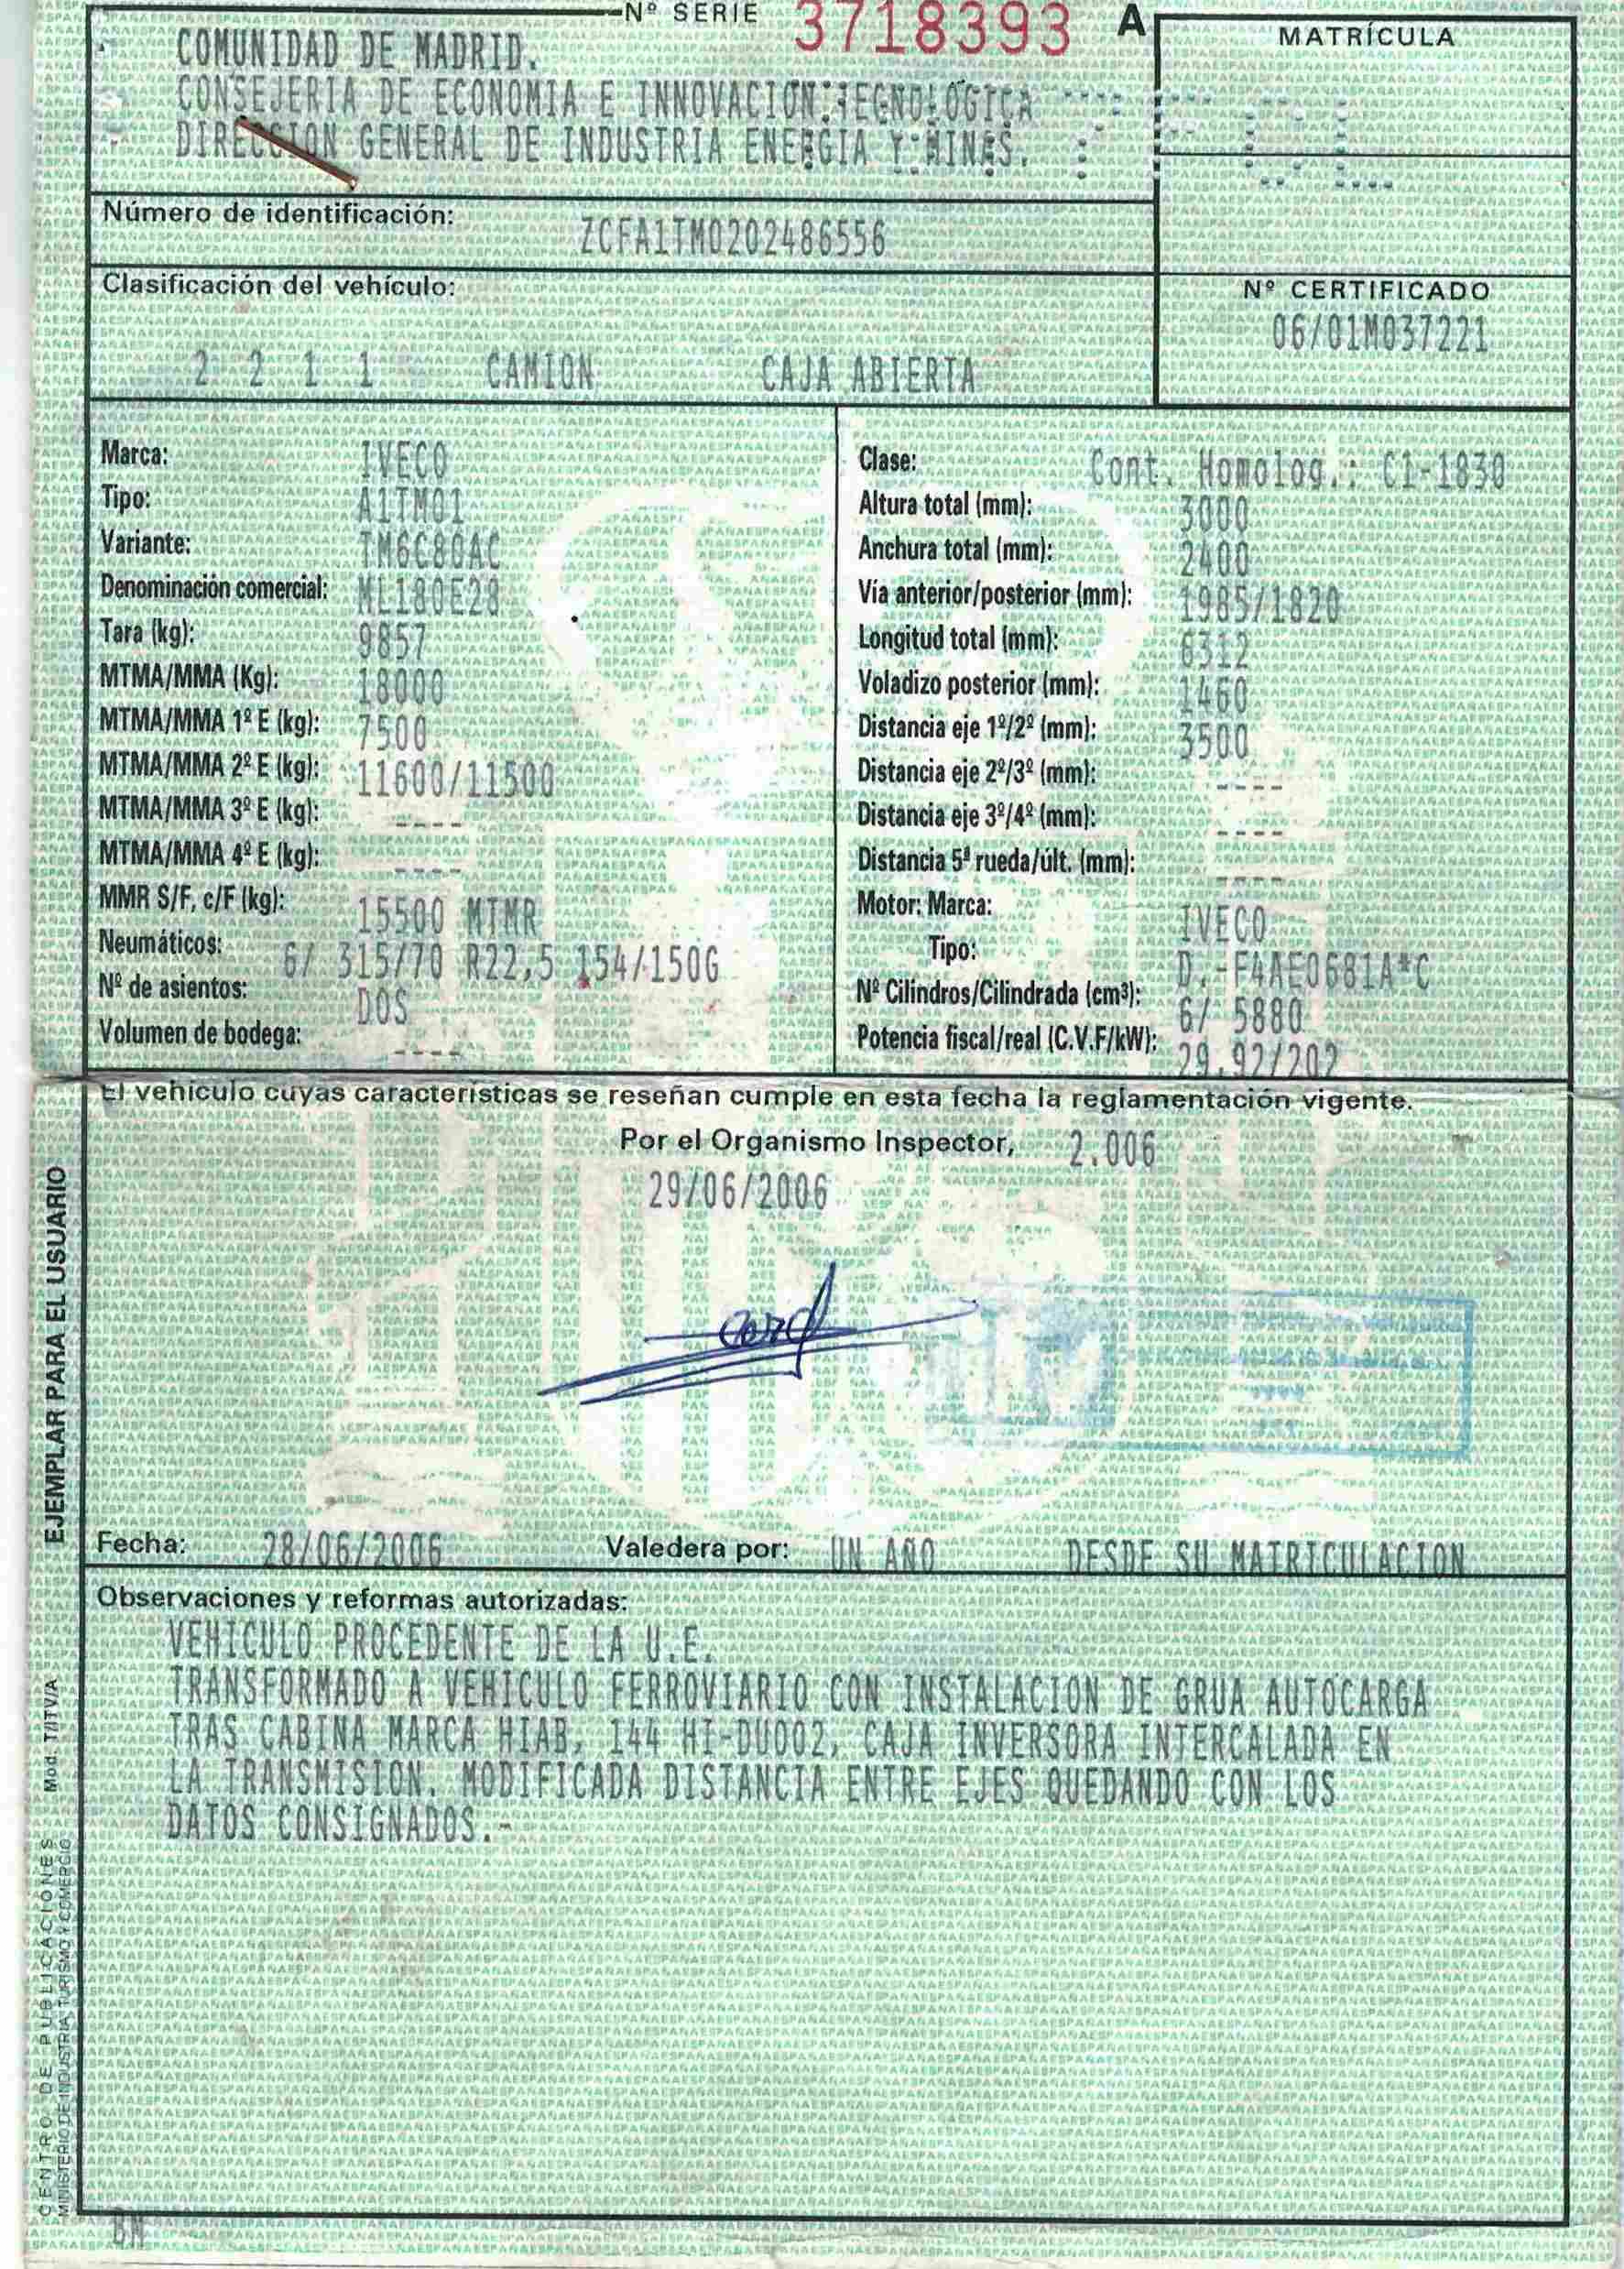 Nº SERIE 3718393 A
COMUNIDAD DE MADRID.
CONSEJERIA DE ECONOMIA E INNOVACION TECNOLÓGICA
DIRECCION GENERAL DE INDUSTRIA ENERGIA Y MINAS.
MATRÍCULA
Número de identificación: ZCFA1TM0202486556
Clasificación del vehículo:
2 2 1 1 CAMION CAJA ABIERTA
Nº CERTIFICADO
06/01M037221
Marca: IVECO
Tipo: A1TM01
Variante: TM6C80AC
Denominación comercial: ML180E28
Tara (kg): 9857
MTMA/MMA (Kg): 18000
MTMA/MMA 1º E (kg): 7500
MTMA/MMA 2º E (kg): 11600/11500
MTMA/MMA 3º E (kg): ----
MTMA/MMA 4º E (kg): ----
MMR S/F, c/F (kg): 15500 MTMR
Neumáticos: 6/ 315/70 R22,5 154/150G
Nº de asientos: DOS
Volumen de bodega: ----
Clase: Cont. Homolog.: C1-1830
Altura total (mm): 3000
Anchura total (mm): 2400
Vía anterior/posterior (mm): 1985/1820
Longitud total (mm): 6312
Voladizo posterior (mm): 1460
Distancia eje 1º/2º (mm): 3500
Distancia eje 2º/3º (mm): ----
Distancia eje 3º/4º (mm): ----
Distancia 5ª rueda/últ. (mm): ----
Motor: Marca: IVECO
Tipo: D.-F4AE0681A*C
Nº Cilindros/Cilindrada (cm³): 6/ 5880
Potencia fiscal/real (C.V.F/kW): 29.92/202
El vehículo cuyas características se reseñan cumple en esta fecha la reglamentación vigente.
Por el Organismo Inspector, 2.006
29/06/2006
itv
Fecha: 28/06/2006 Valedera por: UN AÑO DESDE SU MATRICULACION
Observaciones y reformas autorizadas:
VEHICULO PROCEDENTE DE LA U.E.
TRANSFORMADO A VEHICULO FERROVIARIO CON INSTALACION DE GRUA AUTOCARGA
TRAS CABINA MARCA HIAB, 144 HI-DUO02, CAJA INVERSORA INTERCALADA EN
LA TRANSMISION. MODIFICADA DISTANCIA ENTRE EJES QUEDANDO CON LOS
DATOS CONSIGNADOS.-
BM
EJEMPLAR PARA EL USUARIO
Mod. T/ITV/A
CENTRO DE PUBLICACIONES
MINISTERIO DE INDUSTRIA, TURISMO Y COMERCIO